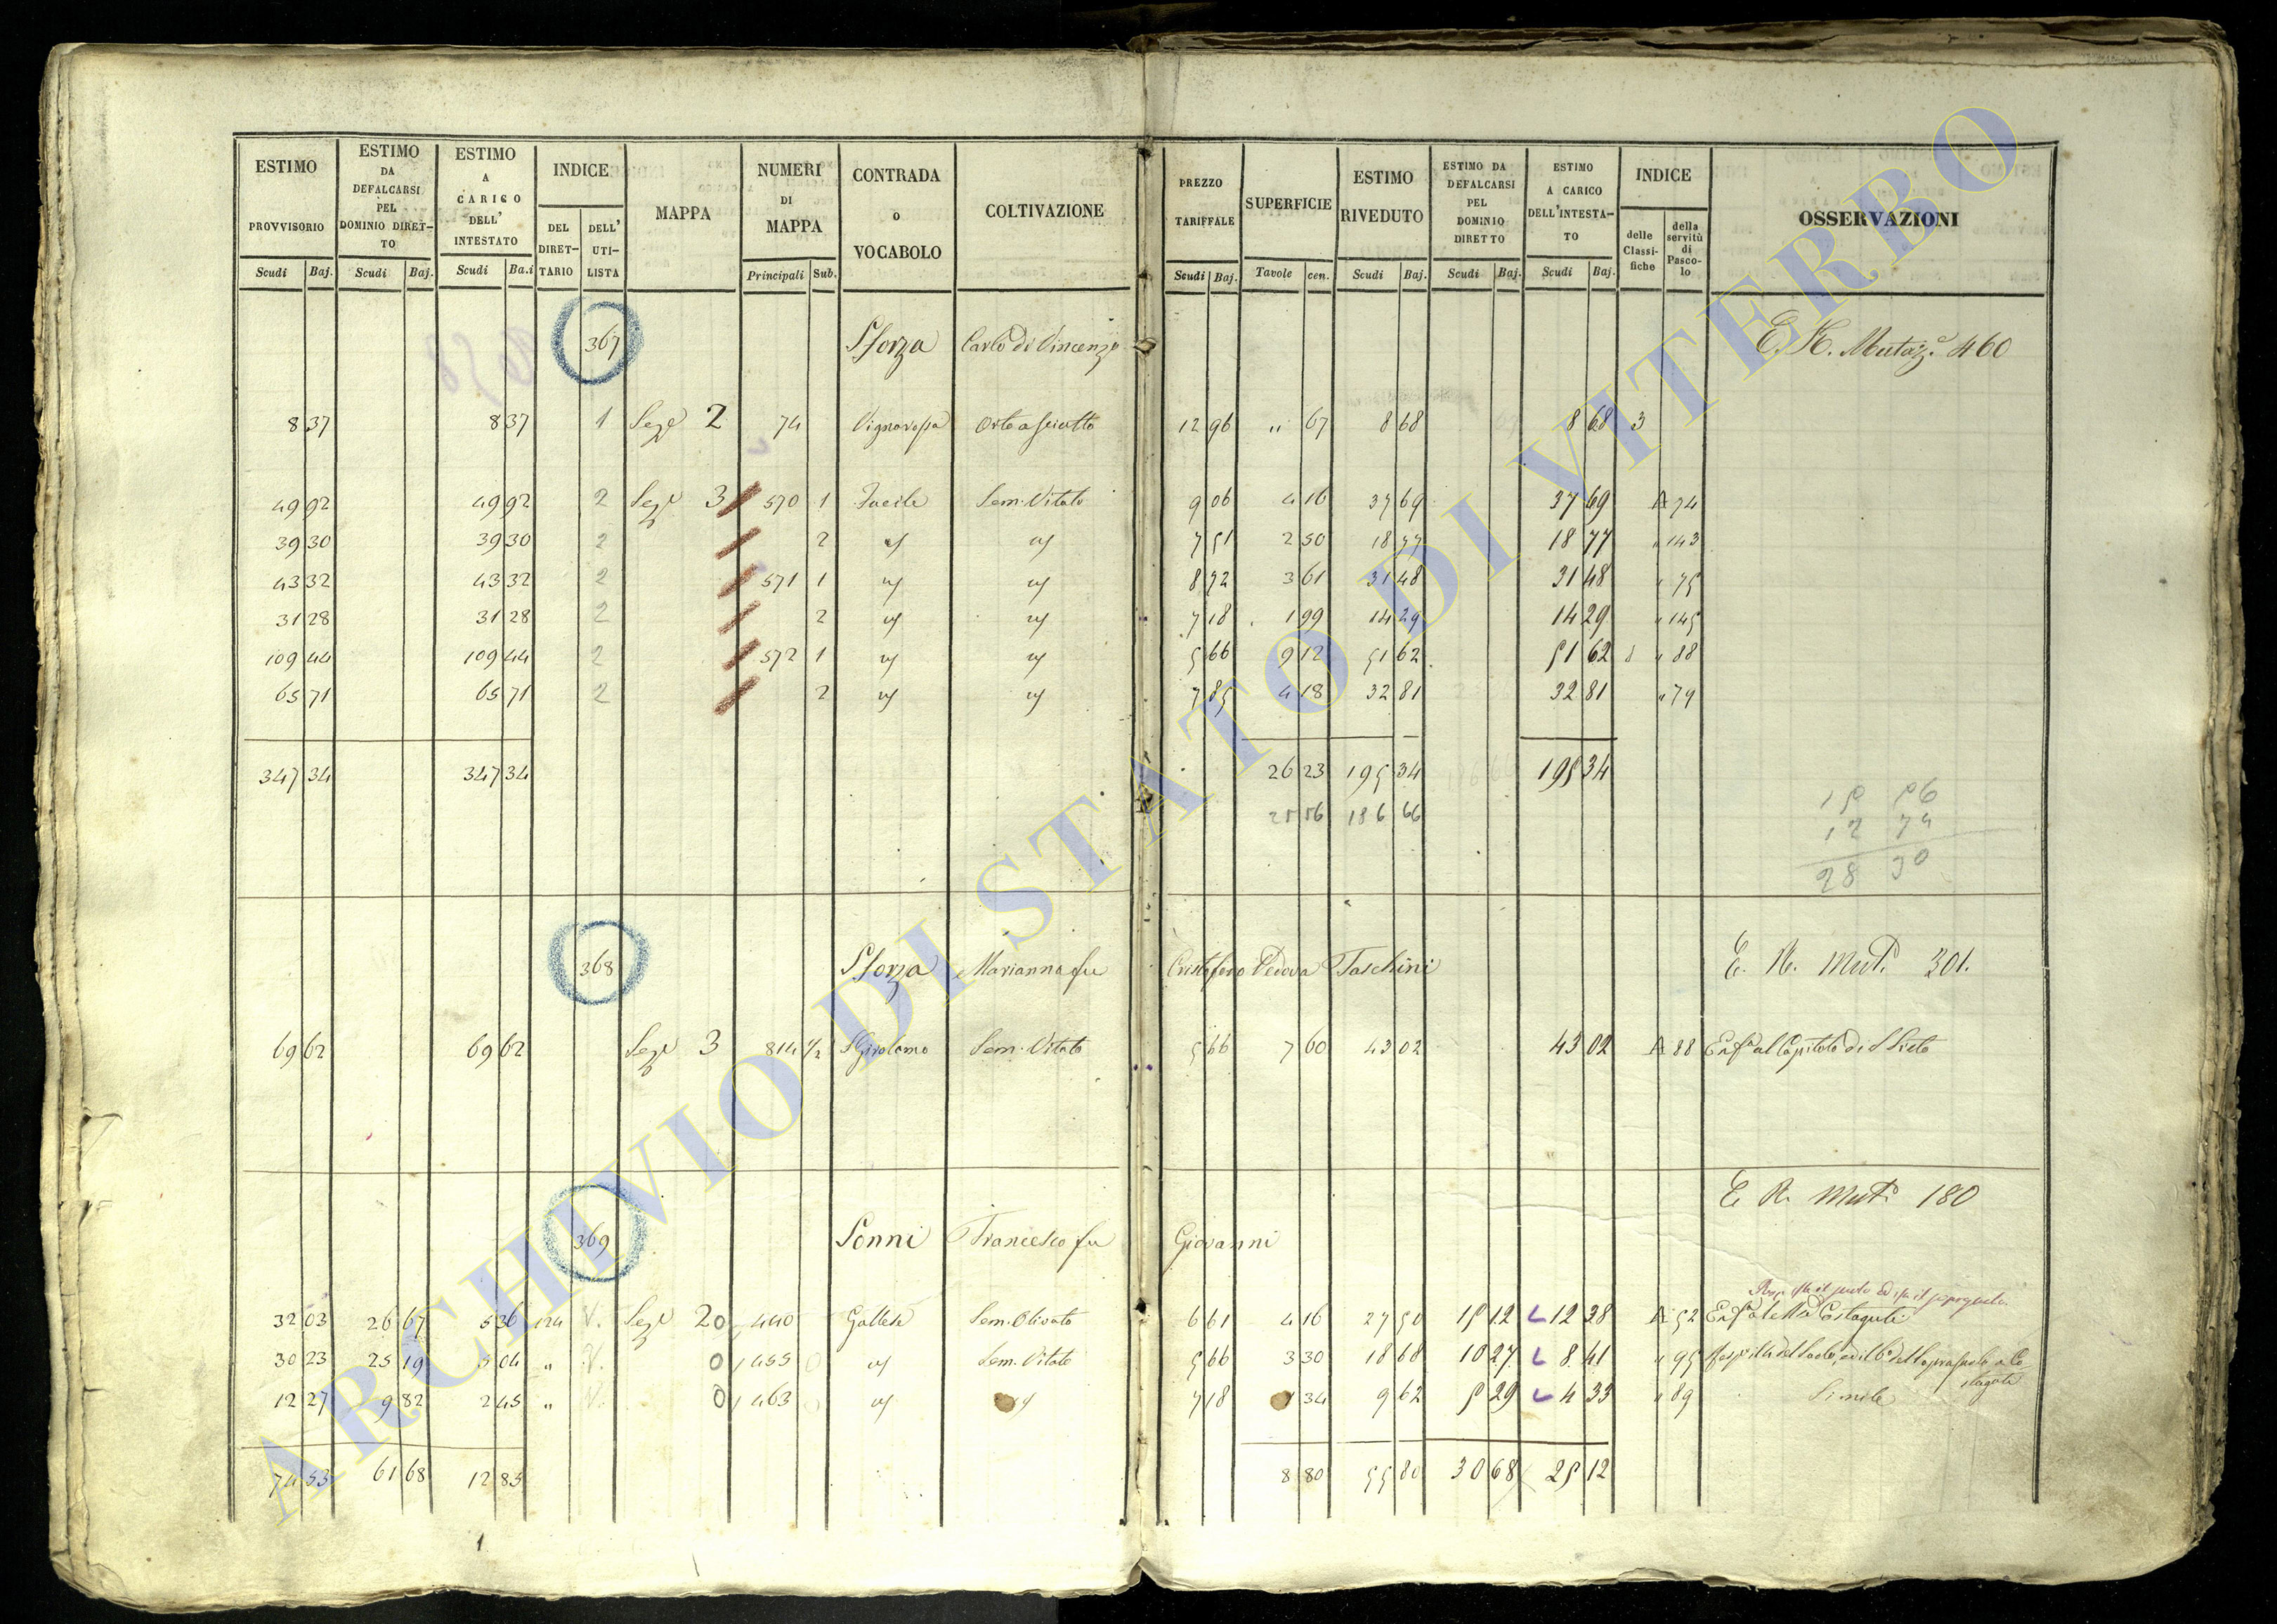 ESTIMO PROVVISORIO Scudi Baj.
ESTIMO DA DEFALCARSI PEL DOMINIO DIRET-TO Scudi Baj.
ESTIMO A CARICO DELL' INTESTATO Scudi Ba.i
INDICE DEL DIRET-TARIO DELL' UTI-LISTA
MAPPA
NUMERI DI MAPPA Principali Sub.
CONTRADA o VOCABOLO
COLTIVAZIONE
PREZZO TARIFFALE Scudi Baj.
SUPERFICIE Tavole cen.
ESTIMO RIVEDUTO Scudi Baj.
ESTIMO DA DEFALCARSI PEL DOMINIO DIRETTO Scudi Baj.
ESTIMO A CARICO DELL'INTESTA-TO Scudi Baj.
INDICE delle Classi-fiche della servitù di Pasco-lo
OSSERVAZIONI
367 Sforza Carlo di Vincenzo 460
8 37 8 37 1 Seze 2 74 Orto asciutto 12 96 " 67 8 68 8 68 3
49 92 49 92 2 Seze 3 570 1 Sem. Vitato 9 06 4 16 37 69 37 69 A 74
39 30 39 30 2 2 7 51 2 50 18 77 18 77 " 143
43 32 43 32 2 571 1 8 72 3 61 31 48 31 48 " 75
31 28 31 28 2 2 7 18 1 99 14 29 14 29 " 145
109 44 109 44 2 572 1 5 66 9 12 51 62 51 62 8 " 88
65 71 65 71 2 2 7 85 4 18 32 81 32 81 " 79
347 34 347 34 26 23 195 34 195 34
25 56 186 66
28 30
368 Sforza Marianna fu Cristoforo Vedova Taschini E. R. Mut. 301.
69 62 69 62 Seze 3 814 1/2 S Girolamo Sem. Vitato 5 66 7 60 43 02 43 02 A 88 al Capitolo di S Sisto
E R. Mut. 180
369 Sonni Francesco fu Giovanni
32 03 26 67 5 36 124 V. Seze 2 440 Gallese Sem. Olivato 6 61 4 16 27 50 15 12 12 38 A 52
30 23 25 19 5 04 " V. 455 Sem. Vitato 5 66 3 30 18 68 10 27 8 41 " 95
12 27 9 82 2 45 " V. 463 7 18 1 34 9 62 5 29 4 33 " 89 Simile
74 53 61 68 12 85 8 80 55 80 30 68 25 12
1
ARCHIVIO DI STATO DI VITERBO